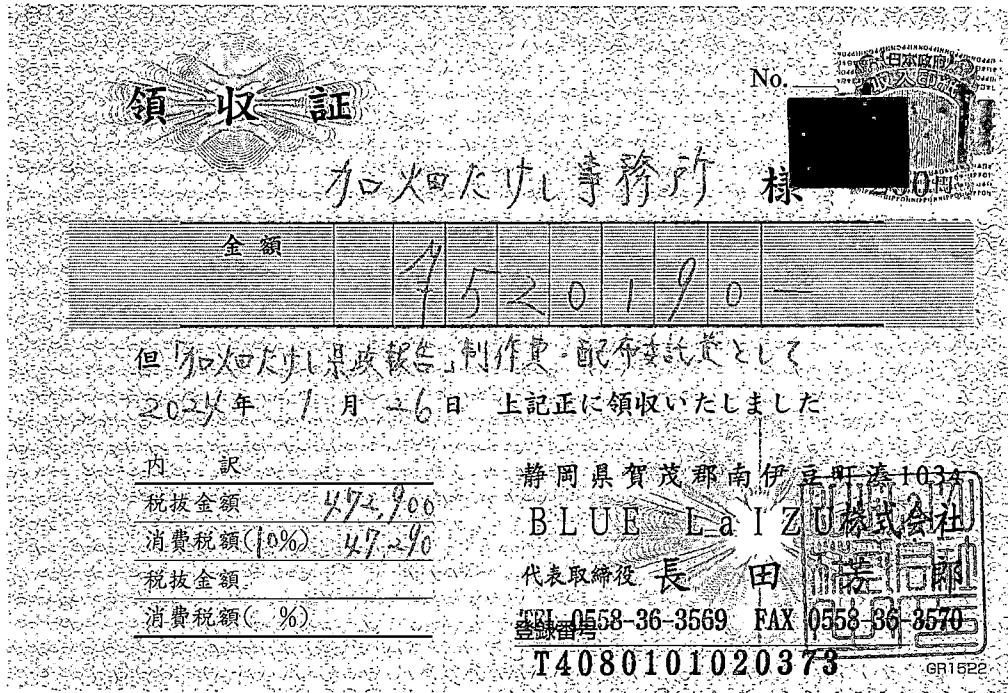 領収証
No.
日本政府
加畑たけし事務所 様
金額 ¥520190-
但「加畑たけし県政報告」制作費・配布委託費として
2024年 1月 26日 上記正に領収いたしました
内訳
税抜金額 472,900
消費税額(10%) 47290
税抜金額
消費税額( %)
静岡県賀茂郡南伊豆町湊1034
BLUE LaIZU株式会社
代表取締役 長田芳郎
TEL 0558-36-3569 FAX 0558-36-3570
登録番号
T4080101020373
GR1522